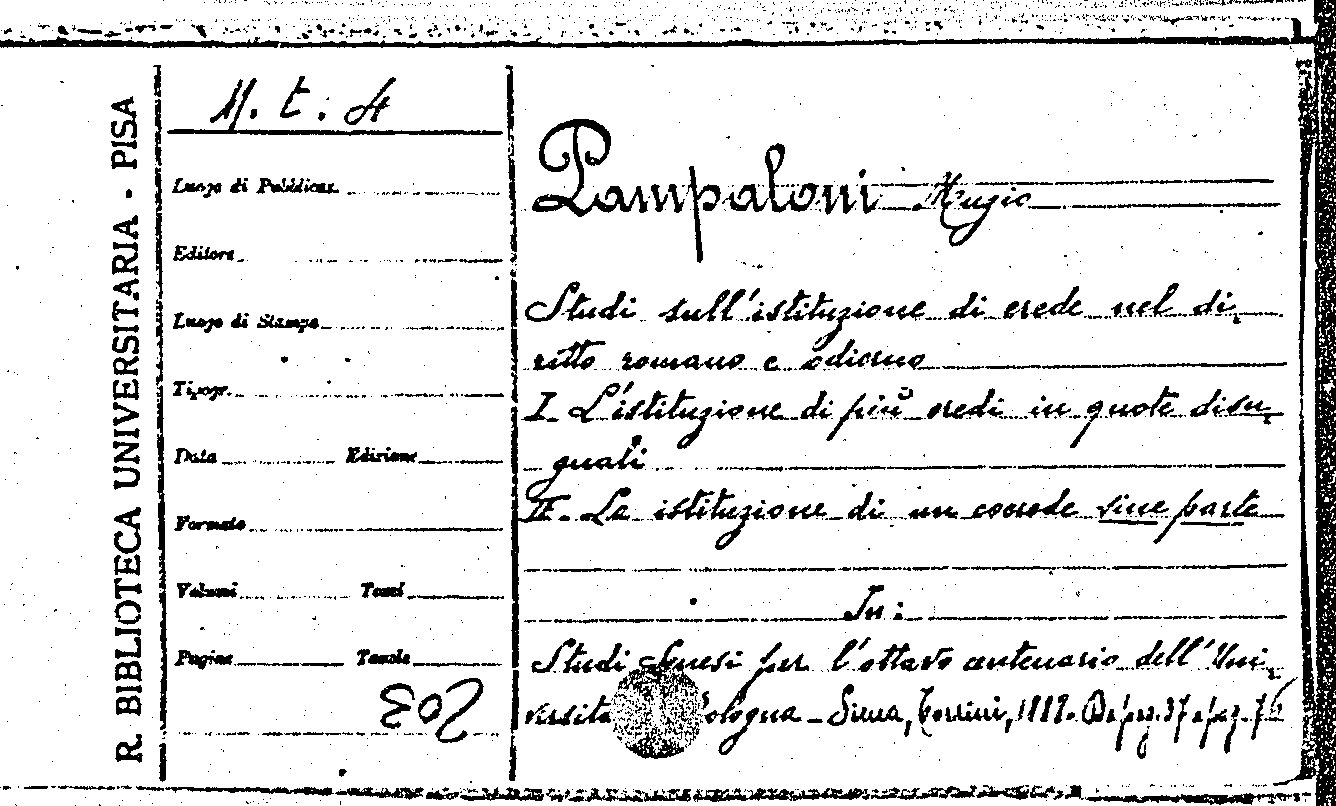 R. BIBLIOTECA UNIVERSITARIA - PISA
M. t. 4
Luogo di Pubblicaz.
Editore
Luogo di Stampa
Tipogr.
Data Edizione
Formato
Volumi Tomi
Pagine Tavole
Pampaloni Muzio
Studi sull'istituzione di erede nel di-
ritto romano e odierno
I. L'istituzione di più eredi in quote disu-
guali
II. La istituzione di un coerede sine parte
In:
Studi Senesi per l'ottavo centenario dell'Uni-
versità Bologna - Siena, Torrini, 1888. Da pag. 37 a pag. 76